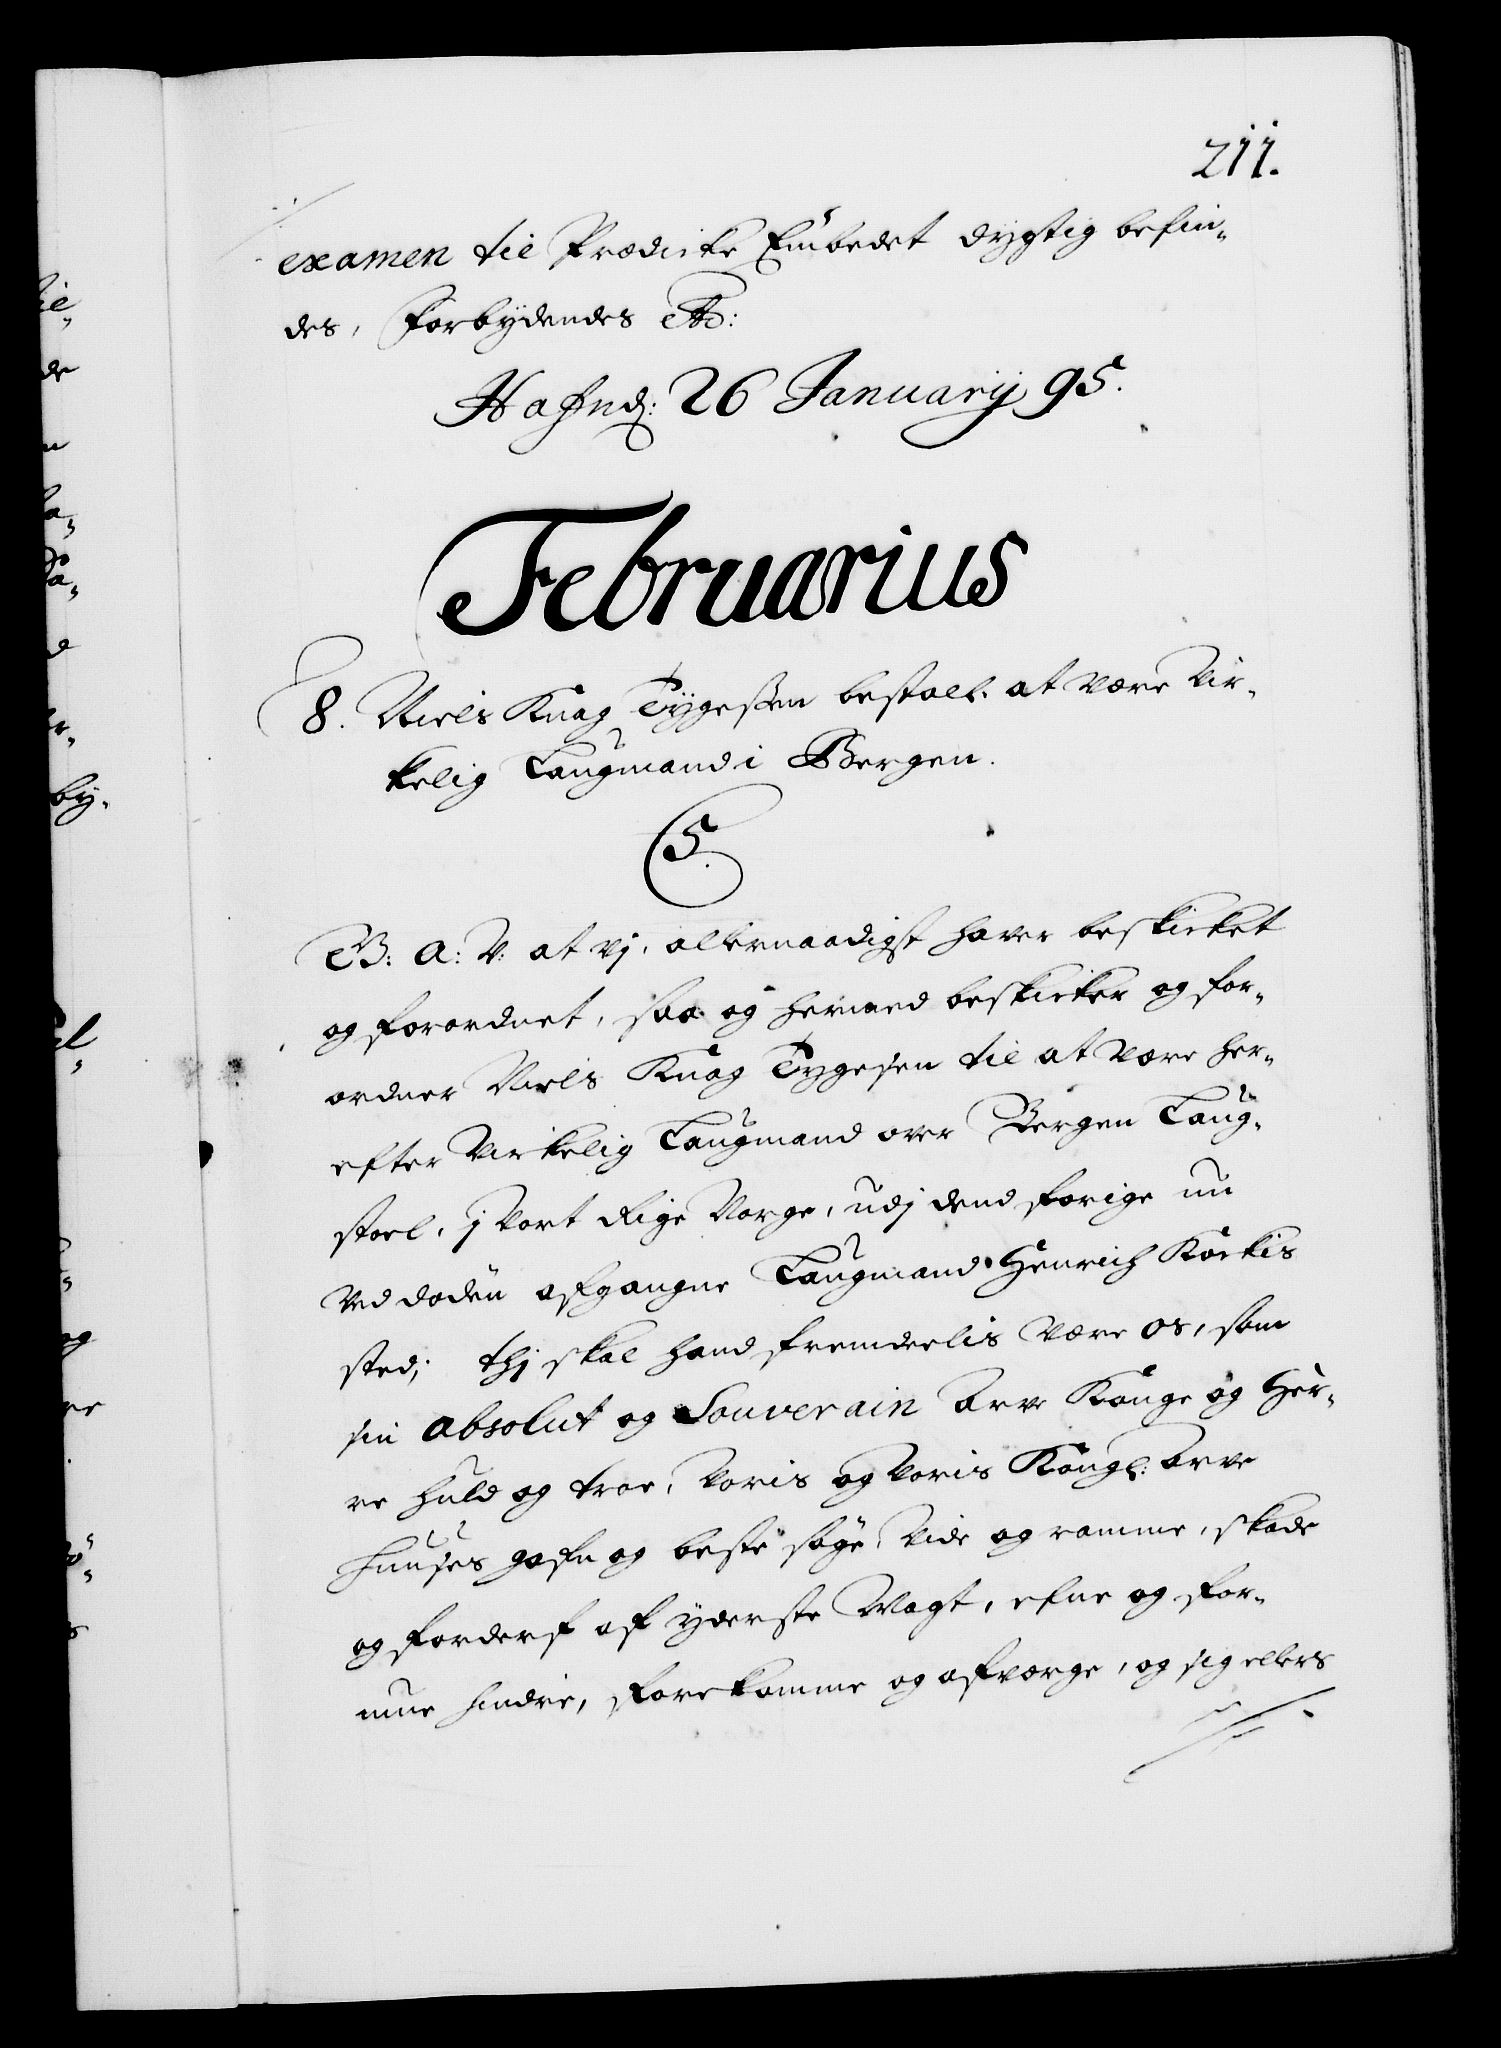 211.
examen til Prædicke Embedet dygtig befin-
des, Forbydendes &c:
Hafnæ: 26 Januarij 95.
Februarius
8. Niels Knag Tygeßen bestalt. at være Vir-
kelig Laugmand i Bergen.
C5.
G: A: V: at vj, allernaadigst haver beskicket
og forordnet, saa og hermed beskicker og for-
ordner Niels Knag Tygesen til at være her-
efter Virkelig Laugmand over Bergen Laug-
stoel, j Vort Rige Norge, udj dend forige nu
ved døden afgangne Laugmand Henrich
sted; thj skal hand fremdeelis være os, som
sin absolut og Souverain Arve Konge og Her-
re huld og troe, Voris og Voris Kongl: Arve
Huuses gafn og beste søge, Vide og ramme, skade
og forderf af yderste Magt, efne og for-
mue hindre, forekomme og afværge, og sig ellers